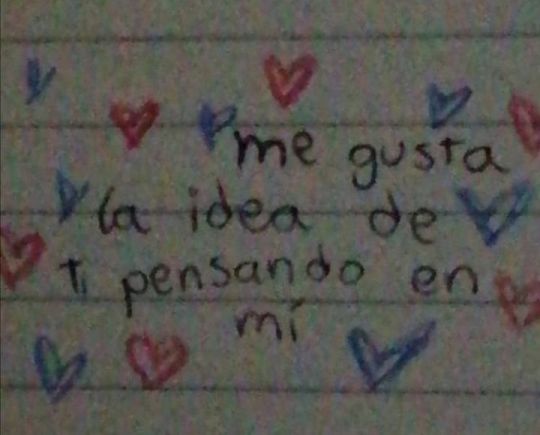 me gusta
la idea de
ti pensando en
mí